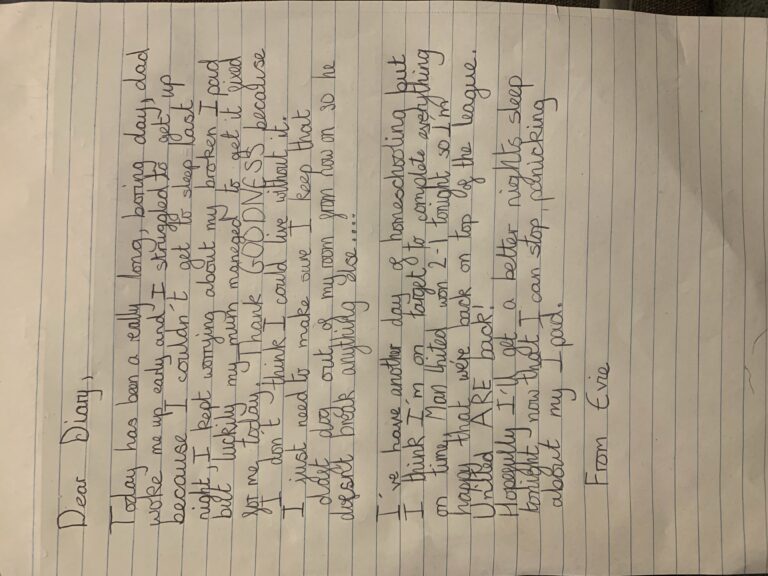 Dear Diary,
Today has been a really long, boring day, dad
woke me up early and I struggled to get up
because I couldn't get to sleep last
night, I kept worrying about my broken I pad
but luckily my mum managed to get it fixed
for me today. Thank GOODNESS because
I don't think I could live without it.
I just need to make sure I keep that
daft dog out of my room from now on so he
doesn't break anything else....
I've have another day of homeschooling but
I think I'm on target to complete everything
on time, Man United won 2-1 tonight so I'm
happy that we're back on top of the league.
United ARE back!
Hopefully I'll get a better nights sleep
tonight now that I can stop panicking
about my I pad.
From Evie